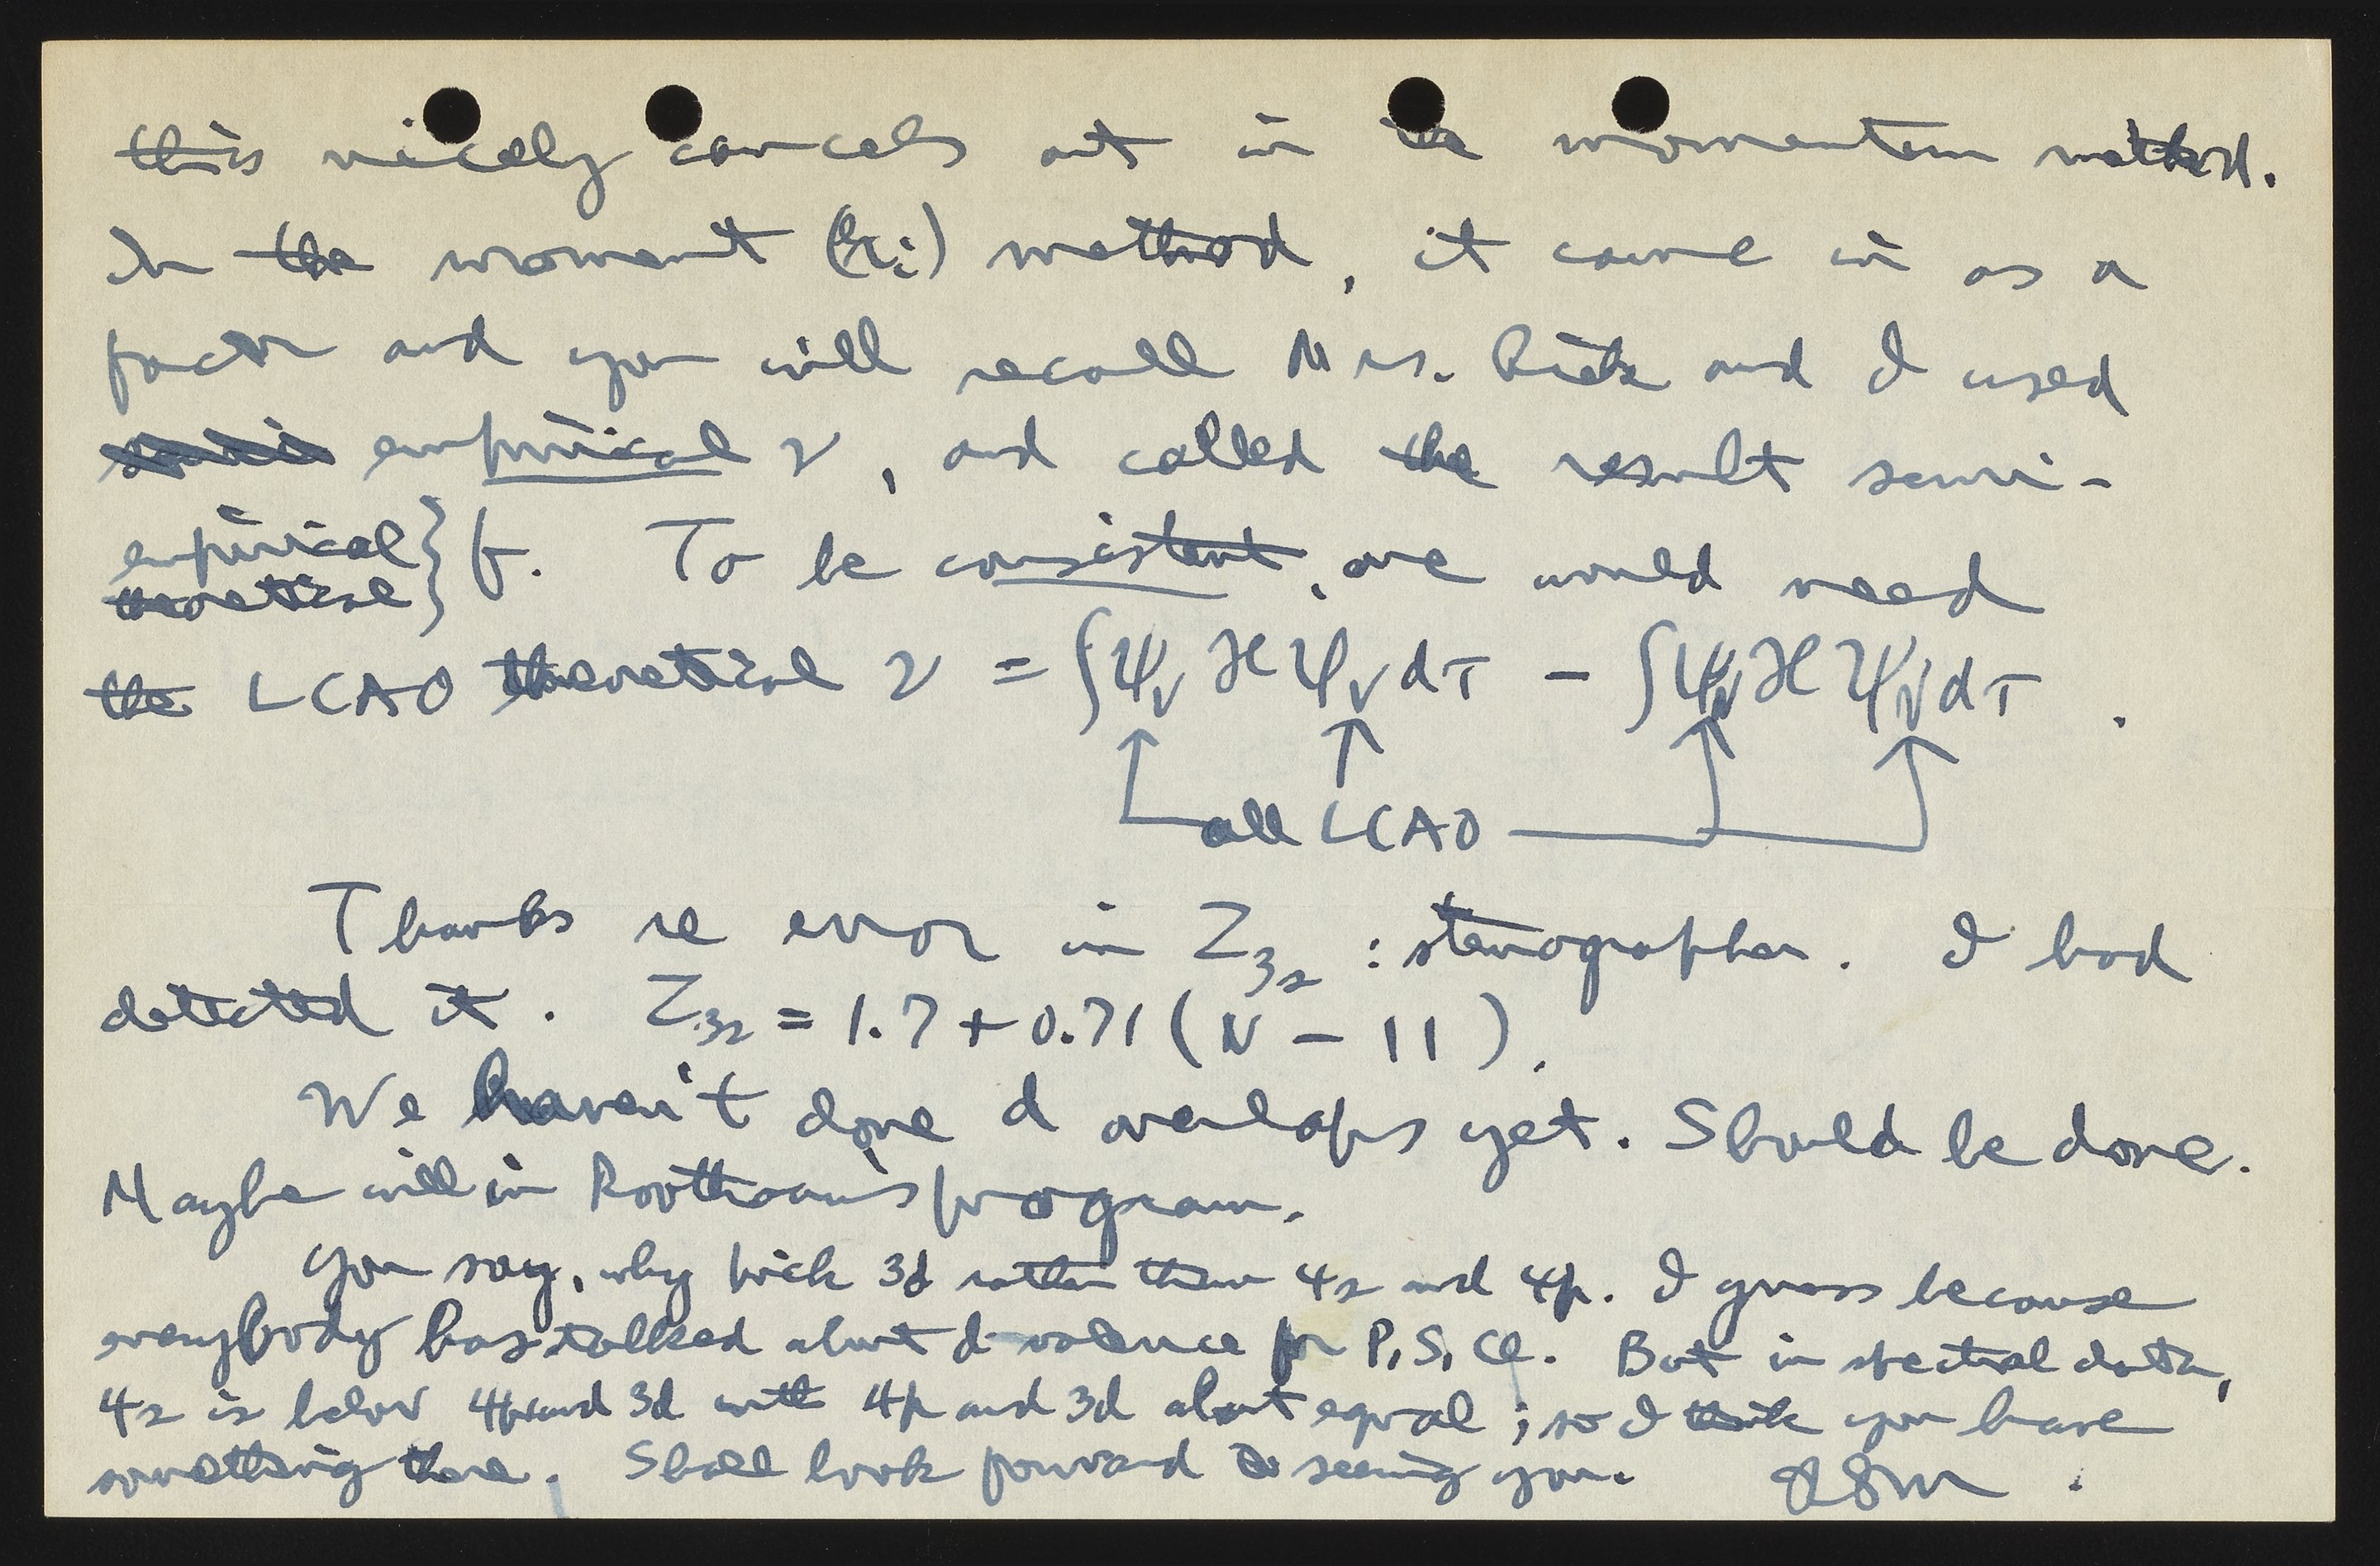 this nicely cancels out in the momentum method.
In the moment (Σxᵢ) method, it came in as a
factor and you will recall Mrs. Rieke and I used
empirical ν, and called the result semi-
empirical } f. To be consistent, one would need
theoretical }
the LCAO theoretical ν = ∫ψ_V ℋ ψ_V dτ − ∫ψ_N ℋ ψ_N dτ .
all LCAO
Thanks re error in Z₃ₛ : stenographer. I had
detected it. Z₃ₛ = 1.7 + 0.71 (N − 11).
We haven't done d overlaps yet. Should be done.
Maybe will in Roothaan's program.
You say, why pick 3d rather than 4s and 4p. I guess because
everybody has talked about d valence for P, S, Cl. But in spectral data,
4s is below 4p and 3d with 4p and 3d about equal; so I think you have
something there. Shall look forward to seeing you. RSM.